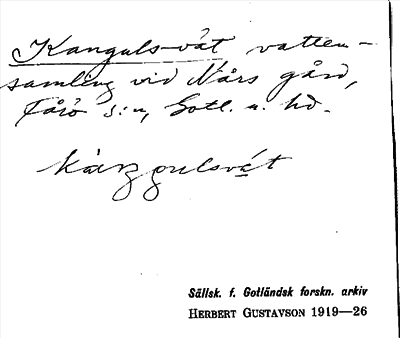 Kanguls-vät vatten-
samling vid Nårs gård,
Fårö s:n, Gotl. n. hd.
kàŋgulsvát
Sällsk. f. Gotländsk forskn. arkiv
HERBERT GUSTAVSON 1919—26